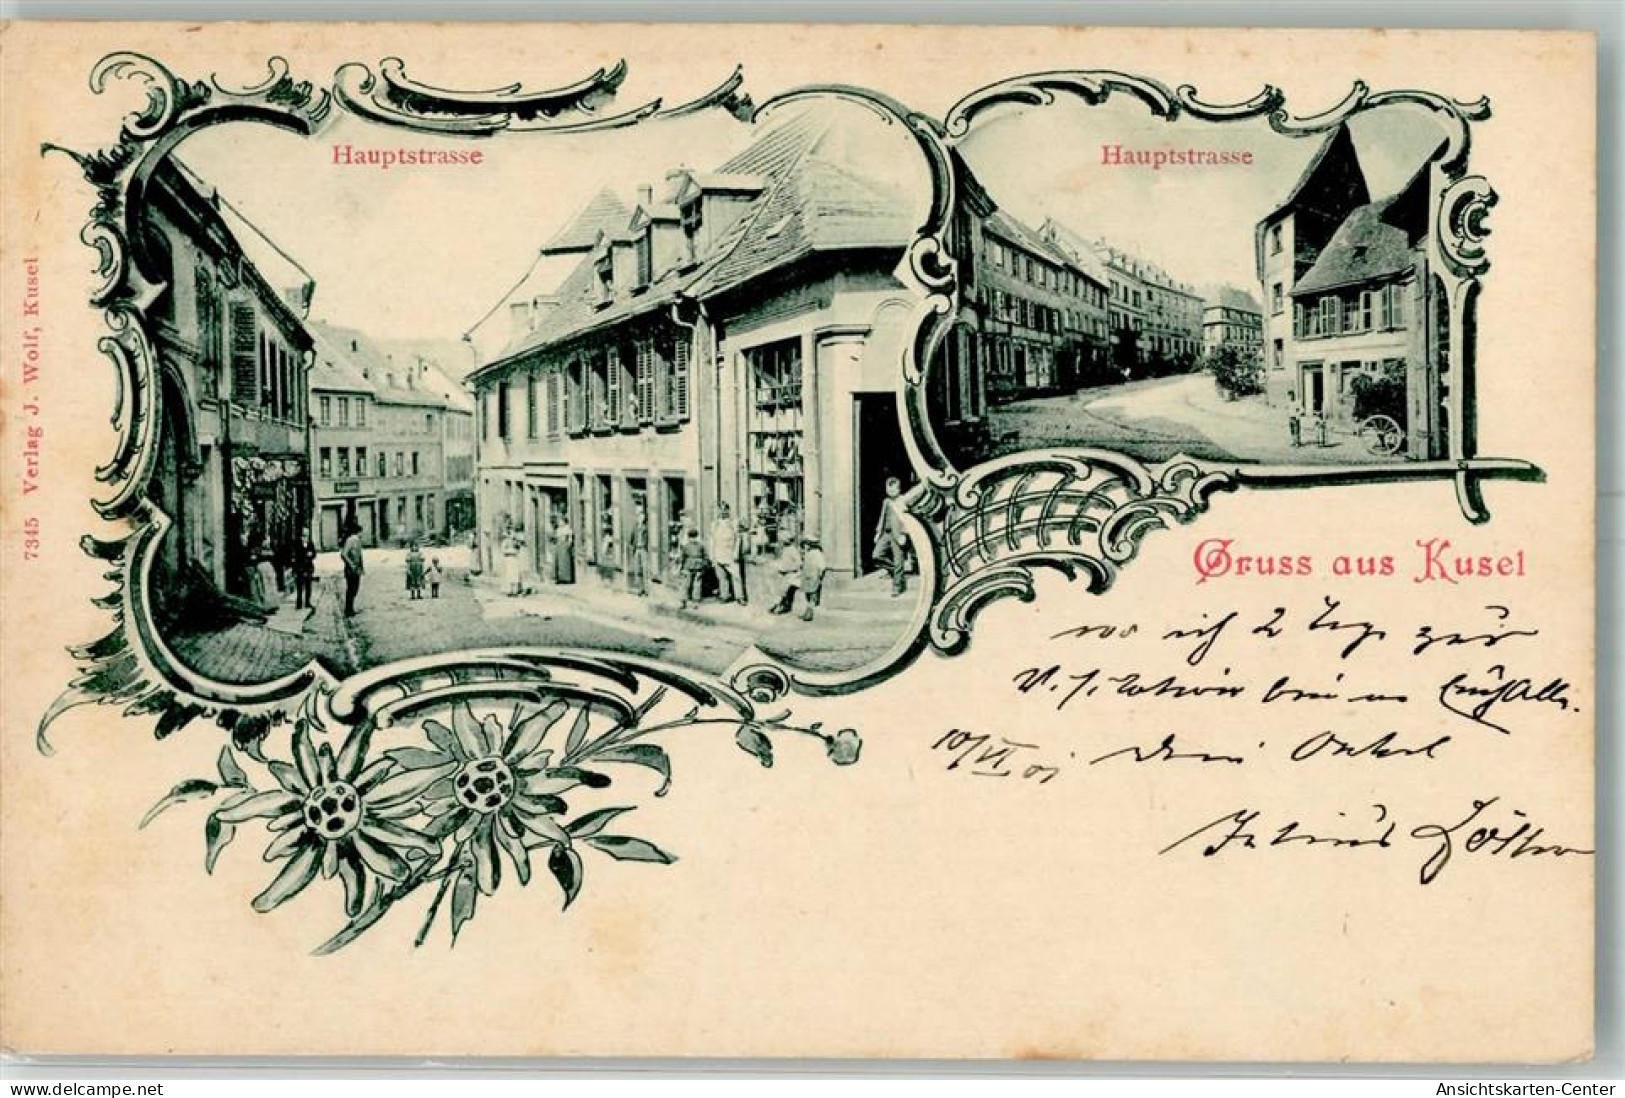 Hauptstrasse
Hauptstrasse
7345 Verlag J. Wolf, Kusel
Gruss aus Kusel
wo ich 2 Tage zur
bin
10/VI 01 Dein Onkel
Julius
Ansichtskarten-Center